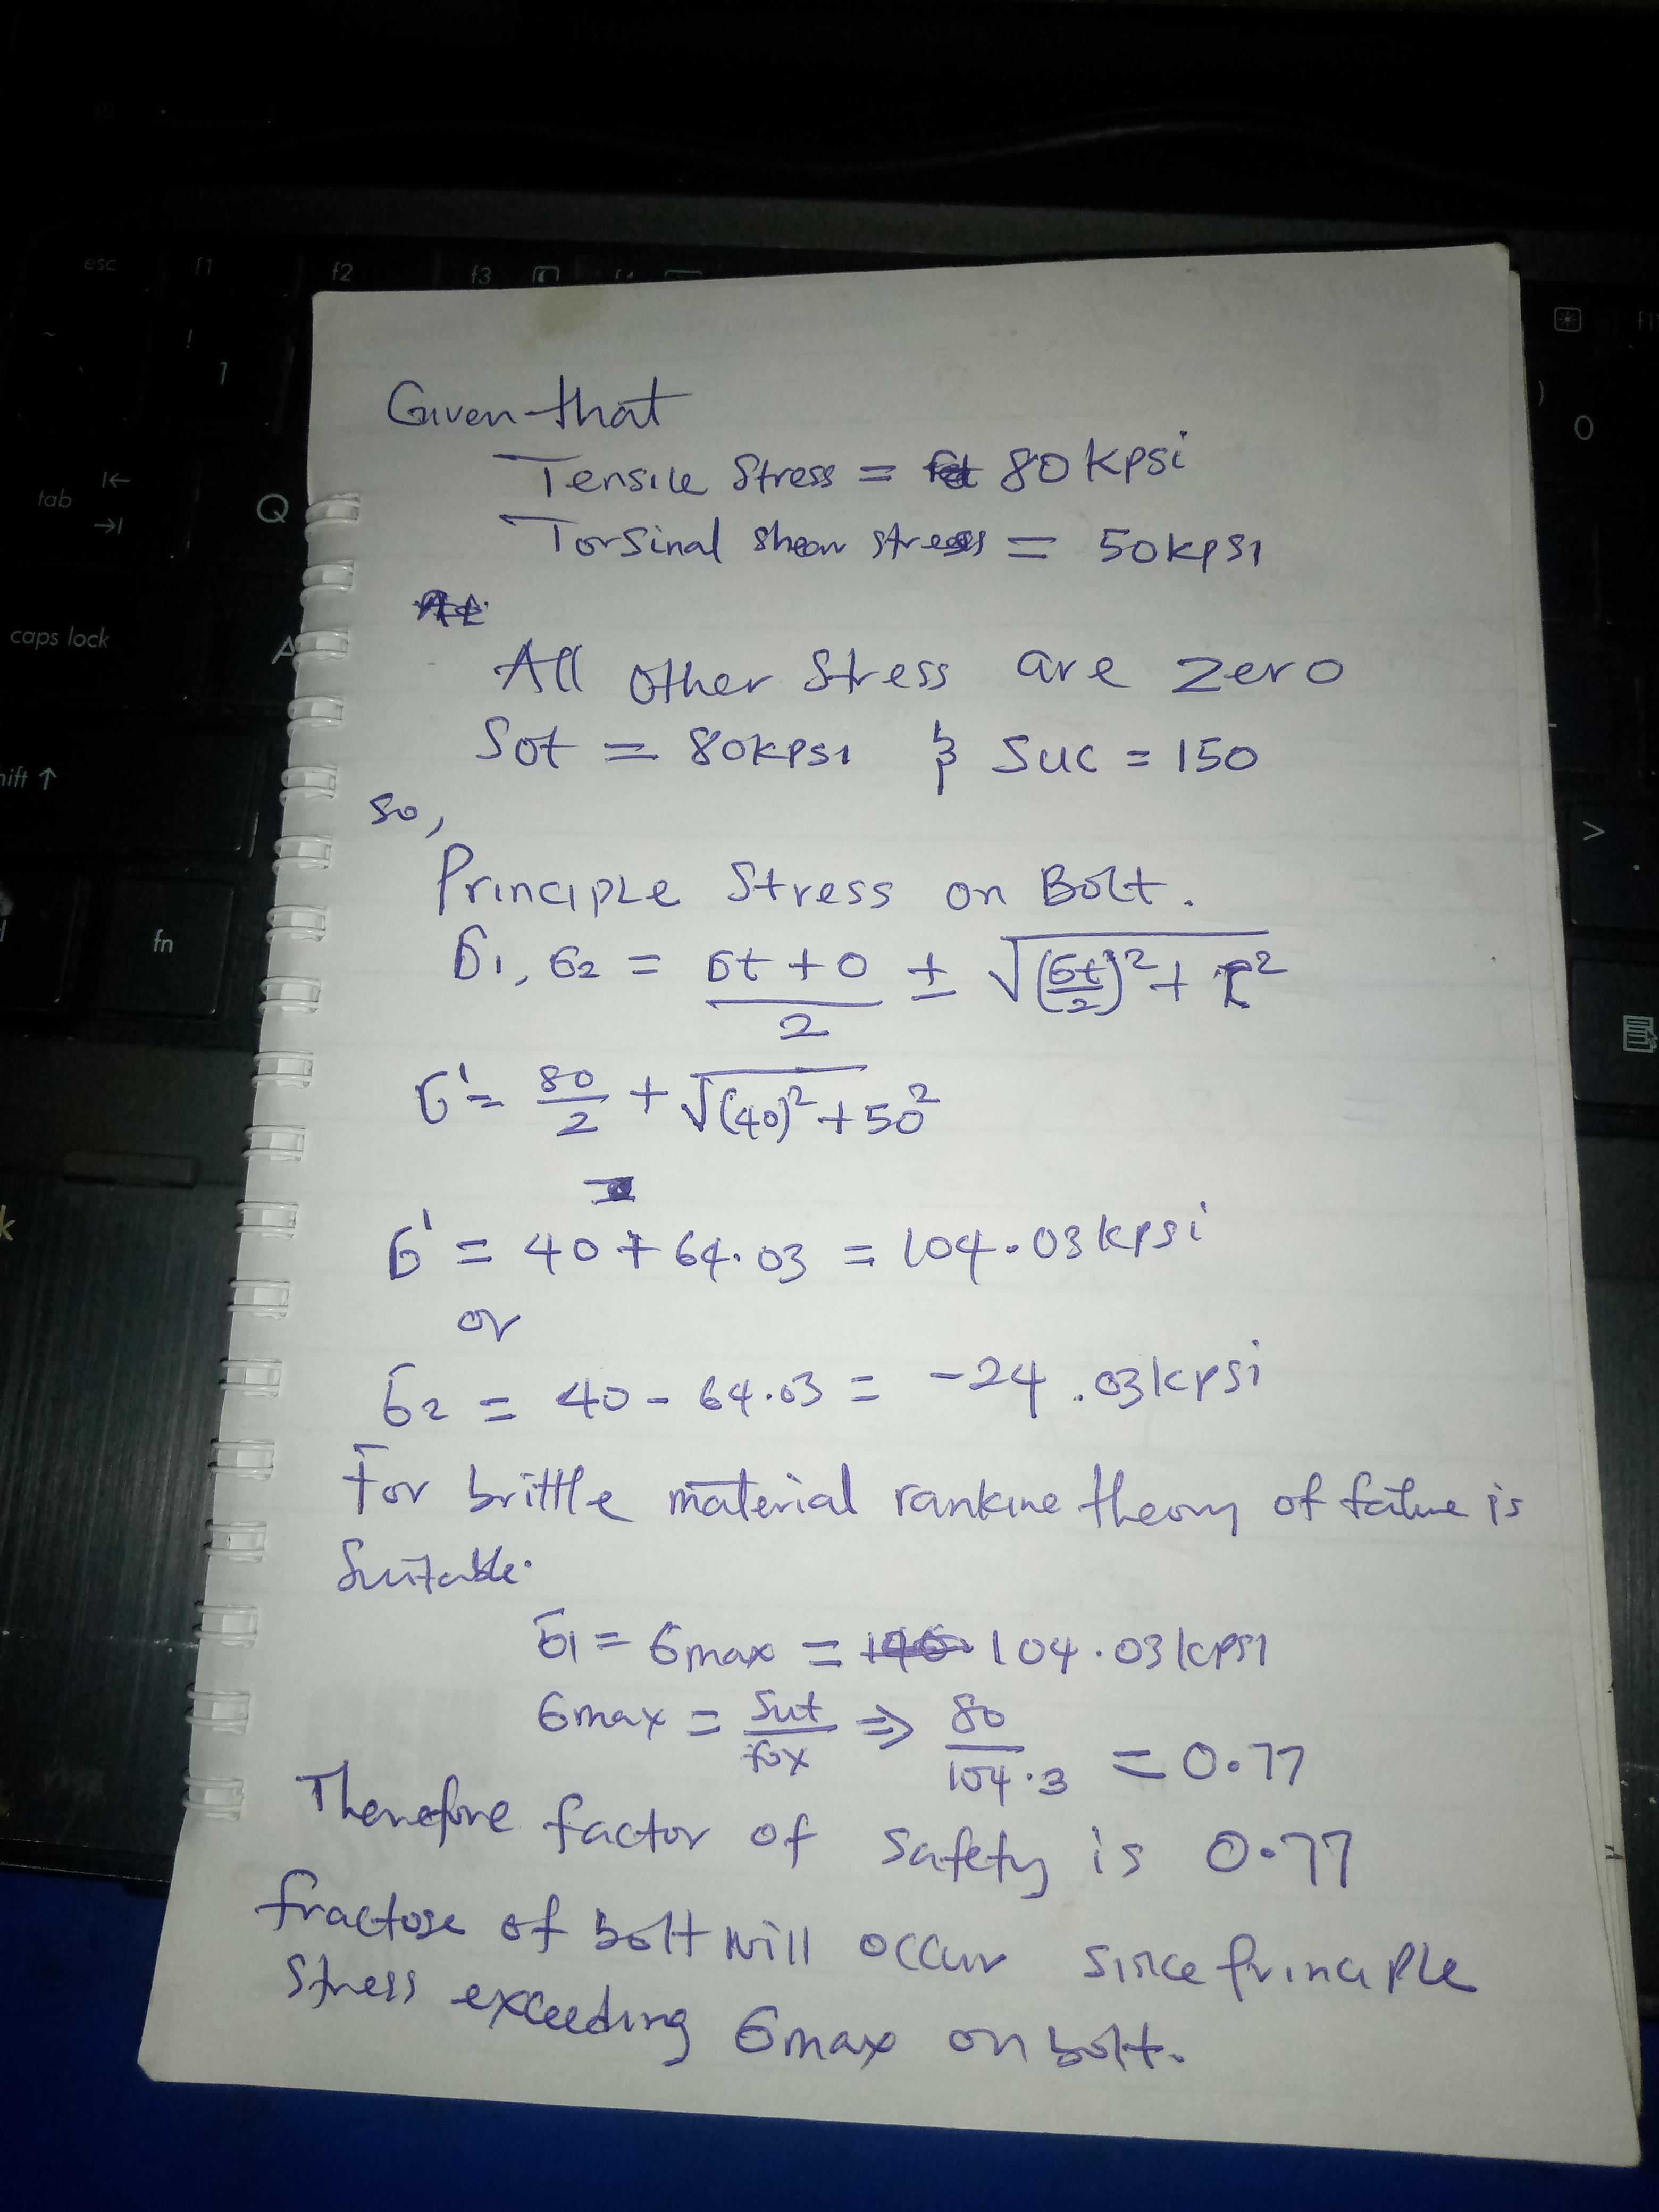 esc f1 f2 f3 f4
! 1
tab Q
caps lock A
shift ↑
fn
) 0
>
k
Given that
Tensile Stress = 80 kpsi
Torsinal shear stress = 50kpsi
All other Stress are zero
Sot = 80kpsi & Suc = 150
so,
Principle Stress on Bolt.
σ1, σ2 = σt + 0 / 2 ± √(σt/2)² + τ²
σ' = 80/2 + √(40)² + 50²
σ' = 40 + 64.03 = 104.03 kpsi
or
σ2 = 40 - 64.03 = -24.03 kpsi
For brittle material rankine theory of failure is
Suitable.
σ1 = σmax = 104.03 kpsi
σmax = Sut/fox ⇒ 80/104.3 = 0.77
Therefore factor of safety is 0.77
fractose of bolt will occur since principle
stress exceeding σmax on bolt.